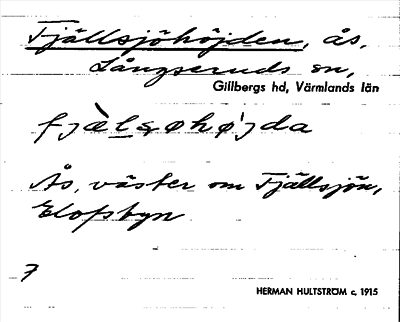 Fjällsjöhöjden, ås,
Långseruds sn,
Gillbergs hd, Värmlands län
fjæ̀lsøhø'jda
Ås, väster om Fjällsjön,
Elofsbyn
7
HERMAN HULTSTRÖM c. 1915